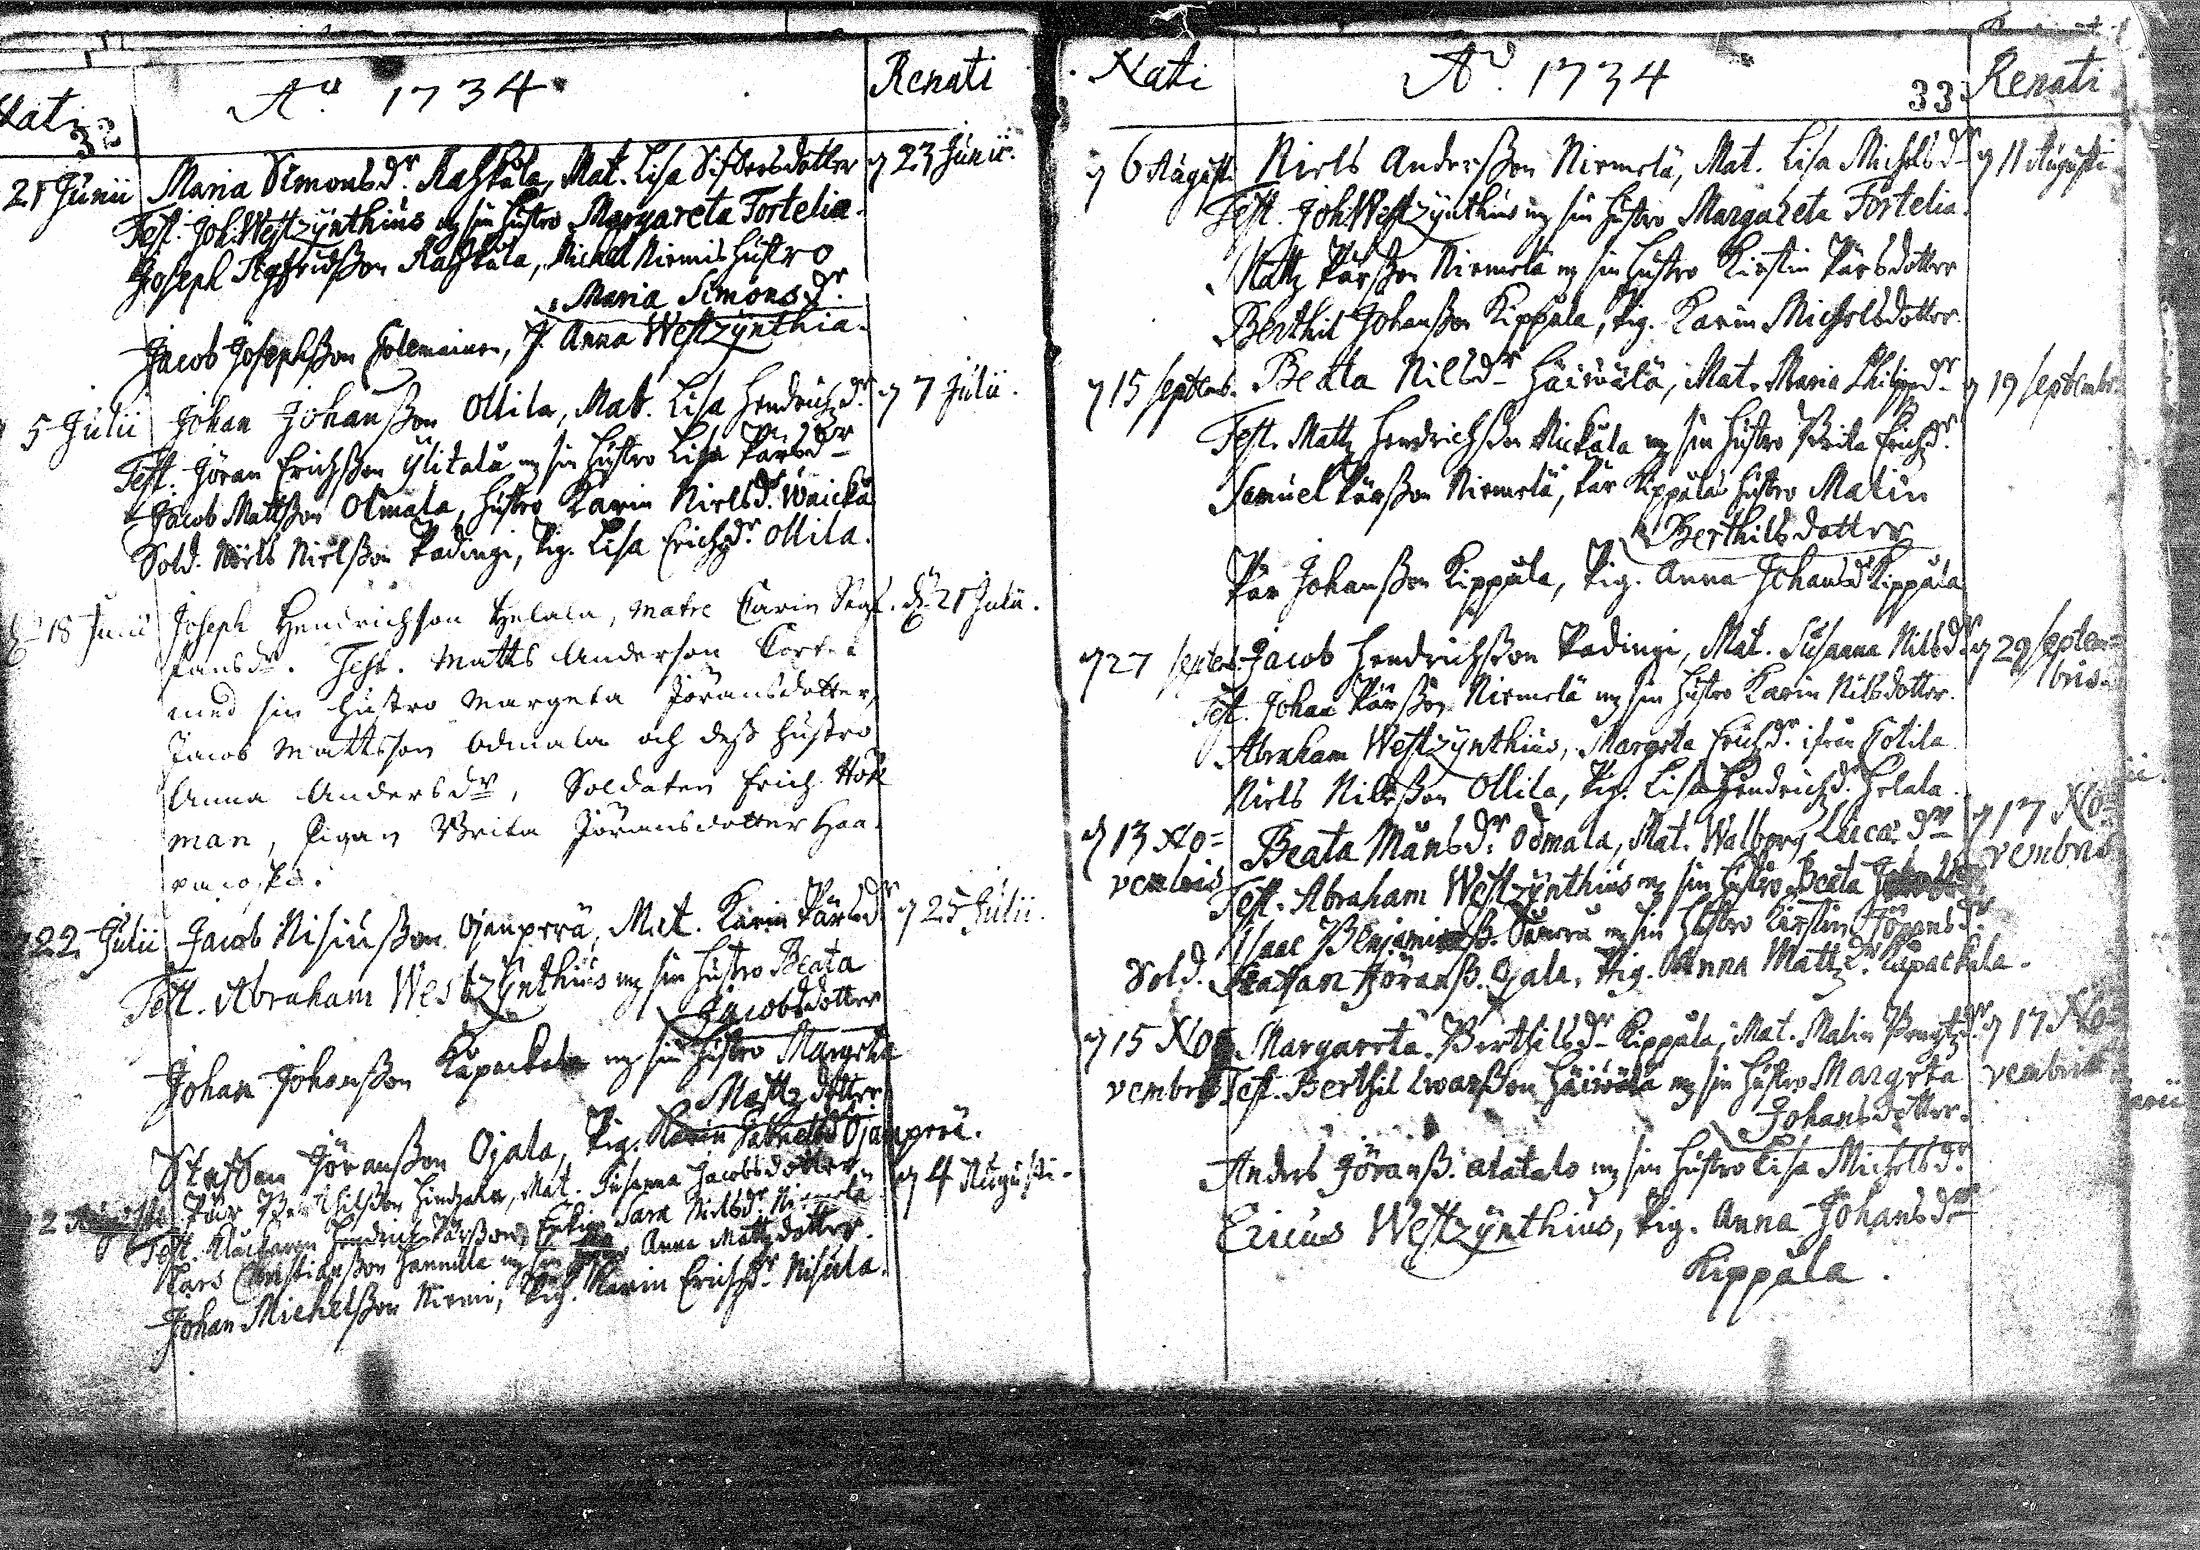 Nati Aº 1734 Renati
32
21 Junii Maria Simonsdr. Raskåla, Mat. Lisa Sifversdotter d 23 Junii.
Test. Joh: Westzynthius m sin hustro Margareta Fortelia.
Joseph Sigfridßon Raskåla, Michel Niemis hustro
Maria Simonsdr.
Jacob Josephßon, J. Anna Westzynthia.
5 Julii Johan Johanßon Ollila, Mat. Lisa Hendrichzdr. d 7 Julii.
Test. Jöran Erichßon Ylitalu m sin hustro Lisa Pärsdr
Jacob Mattßon Olmala, hustro Karin Nielsdr. Waicku
Sold. Niels Nielßon Padingi, Pig. Lisa Erichzdr. Ollila.
18 Junii Joseph Hendrichson Helala, matre Carin Staf- d. 21 Julii.
fansdr. Test. Matts Anderson
med sin hustro Margeta Jöransdotter,
Jacob Mattsson Odmala och dess hustro
Anna Andersdr, Soldaten Erich Hök
man, Pigan Brita Jöransdotter
22 Julii Jacob Nisiußon Ojanperä, Mat. Karin Pärsdr d 25 Julii.
Test. Abraham Westzynthius m sin hustro Beata
Jacobsdotter
Johan Johanßon Kåpackala m sin hustro Margeta
Mattzdotter
Staffan Jöranßon Ojala, Pig. Karin Ojanperä.
2 Pär Berthilßon, Mat. Susanna Jacobsdotter. d 4 Augusti.
Test. Hendrich Pärßon, Sara Nielsdr. Niemelä
Lars Christianßon Hannilla m sin Anna Mattzdotter.
Johan Michelßon Niemi, Pig. Karin Erichzdr. Nisula.
Nati Aº 1734 33 Renati
d 6 Augusti. Niels Anderßon Niemelä, Mat. Lisa Michelsdr d 11 Augusti
Test. Joh: Westzynthius m sin hustro Margareta Fortelia.
Mattz Pärßon Niemelä m sin hustro Kirstin Pärsdotter
Berthil Johanßon Kippåla, Pig. Karin Michelsdotter.
d 15 septemb. Beata Nilsdr Häiwälä, Mat. Maria Philippsdr d 19 septemb.
Test. Mattz Hendrichßon Nickåla m sin hustro Brita Erichzdr.
Samuel Pärßon Niemelä, Pär Kippålas hustro Malin
Berthilsdotter
Pär Johanßon Kippåla, Pig. Anna Johansdr Kippåla
d 27 septemb. Jacob Hendrichßon Padingi, Mat. Susanna Nilsdr. d 29 septem=
bris.
Test. Johan Pärßon Niemelä m sin hustro Karin Nilsdotter.
Abraham Westzynthius, Margeta Erichzdr. ifrån
Niels Nilsßon Ollila, Pig. Lisa Hendrichzdr. Helala.
d 13 No= Beata Månsdr. Odmala, Mat. Walborg Lucædr d 17 No=
vembris Test. Abraham Westzynthius m sin hustro Beata vembris
Isaac Benjaminß. m sin hustro Kirstin Jöransdr.
Sold. Staffan Jöranß. Ojala, Pig. Anna Mattzdr. Kåpackala.
d 15 No= Margareta Berthilsdr Kippåla, Mat. Malin Bengtzdr. d 17 No=
vembris Test. Berthil Iwarßon Häiwälä m sin hustro Margeta vembris
Johansdotter.
Anders Jöranß. Alatalo m sin hustro Lisa Michelsdr.
Ericus Westzynthius, Pig. Anna Johansdr
Kippåla.